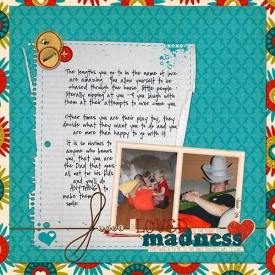 xoxo
The lengths you go to in the name of love
are amazing. You allow yourself to be
chased through the house, little people
literally nipping at you & you laugh with
them at their attempts to over come you.
Other times you are their play toy, they
decide what they want you to do and you
are more than happy to go with it.
It is so obvious to
anyone who knows
you that you are
the Dad that goes
all out for his kids
and you'll do
ANYTHING to
make them
smile.
LOVED
madness